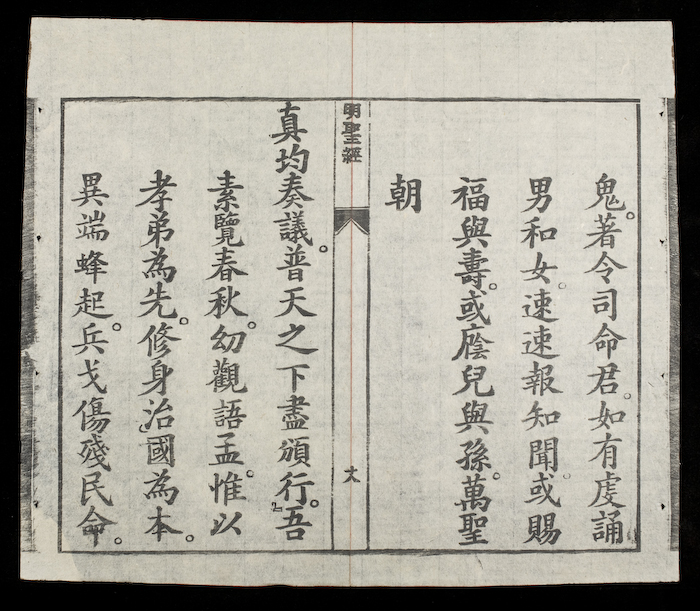 鬼。著令司命君。如有虔誦
男和女。速速報知聞。或賜
福與壽。或廕兒與孫。萬聖
朝
明聖經
真均奏議。普天之下盡頒行。吾
素覽春秋。幼觀語孟。惟以
孝弟為先。修身治國為本。
異端蜂起。兵戈傷殘民命。